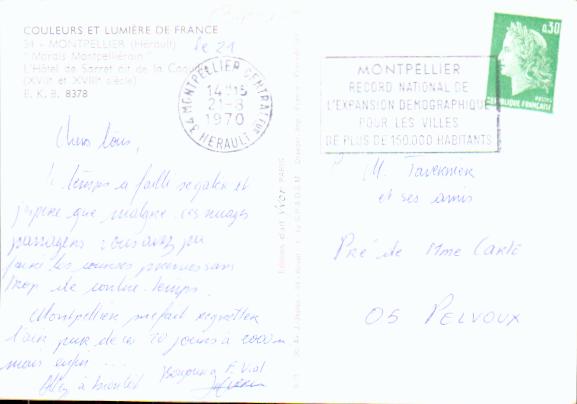 COULEURS ET LUMIÈRE DE FRANCE
34 - MONTPELLIER (Hérault)
"Marais Montpelliérain"
L'Hôtel de Sarret dit de la
(XVIIe et XVIIIe siècle)
E. K. B. 8378
le 21
34 MONTPELLIER CENTRALISATEUR
14H15
21-8
1970
HERAULT
MONTPELLIER
RECORD NATIONAL DE
L'EXPANSION DEMOGRAPHIQUE
POUR LES VILLES
DE PLUS DE 150.000 HABITANTS
0,30
POSTES
REPUBLIQUE FRANCAISE
Chers tous,
temps a failli se gâter et
j'espère que malgré ces nuages
passagers vous avez pu
faire les courses prévues sans
trop de contre-temps.
Montpellier me fait regretter
l'air pur de ces 20 jours à 2000 m
mais enfin ...
à bientôt
Editions d'art YVON PARIS
M. Tavernier
et ses amis
Pré de Mme Carle
05 PELVOUX